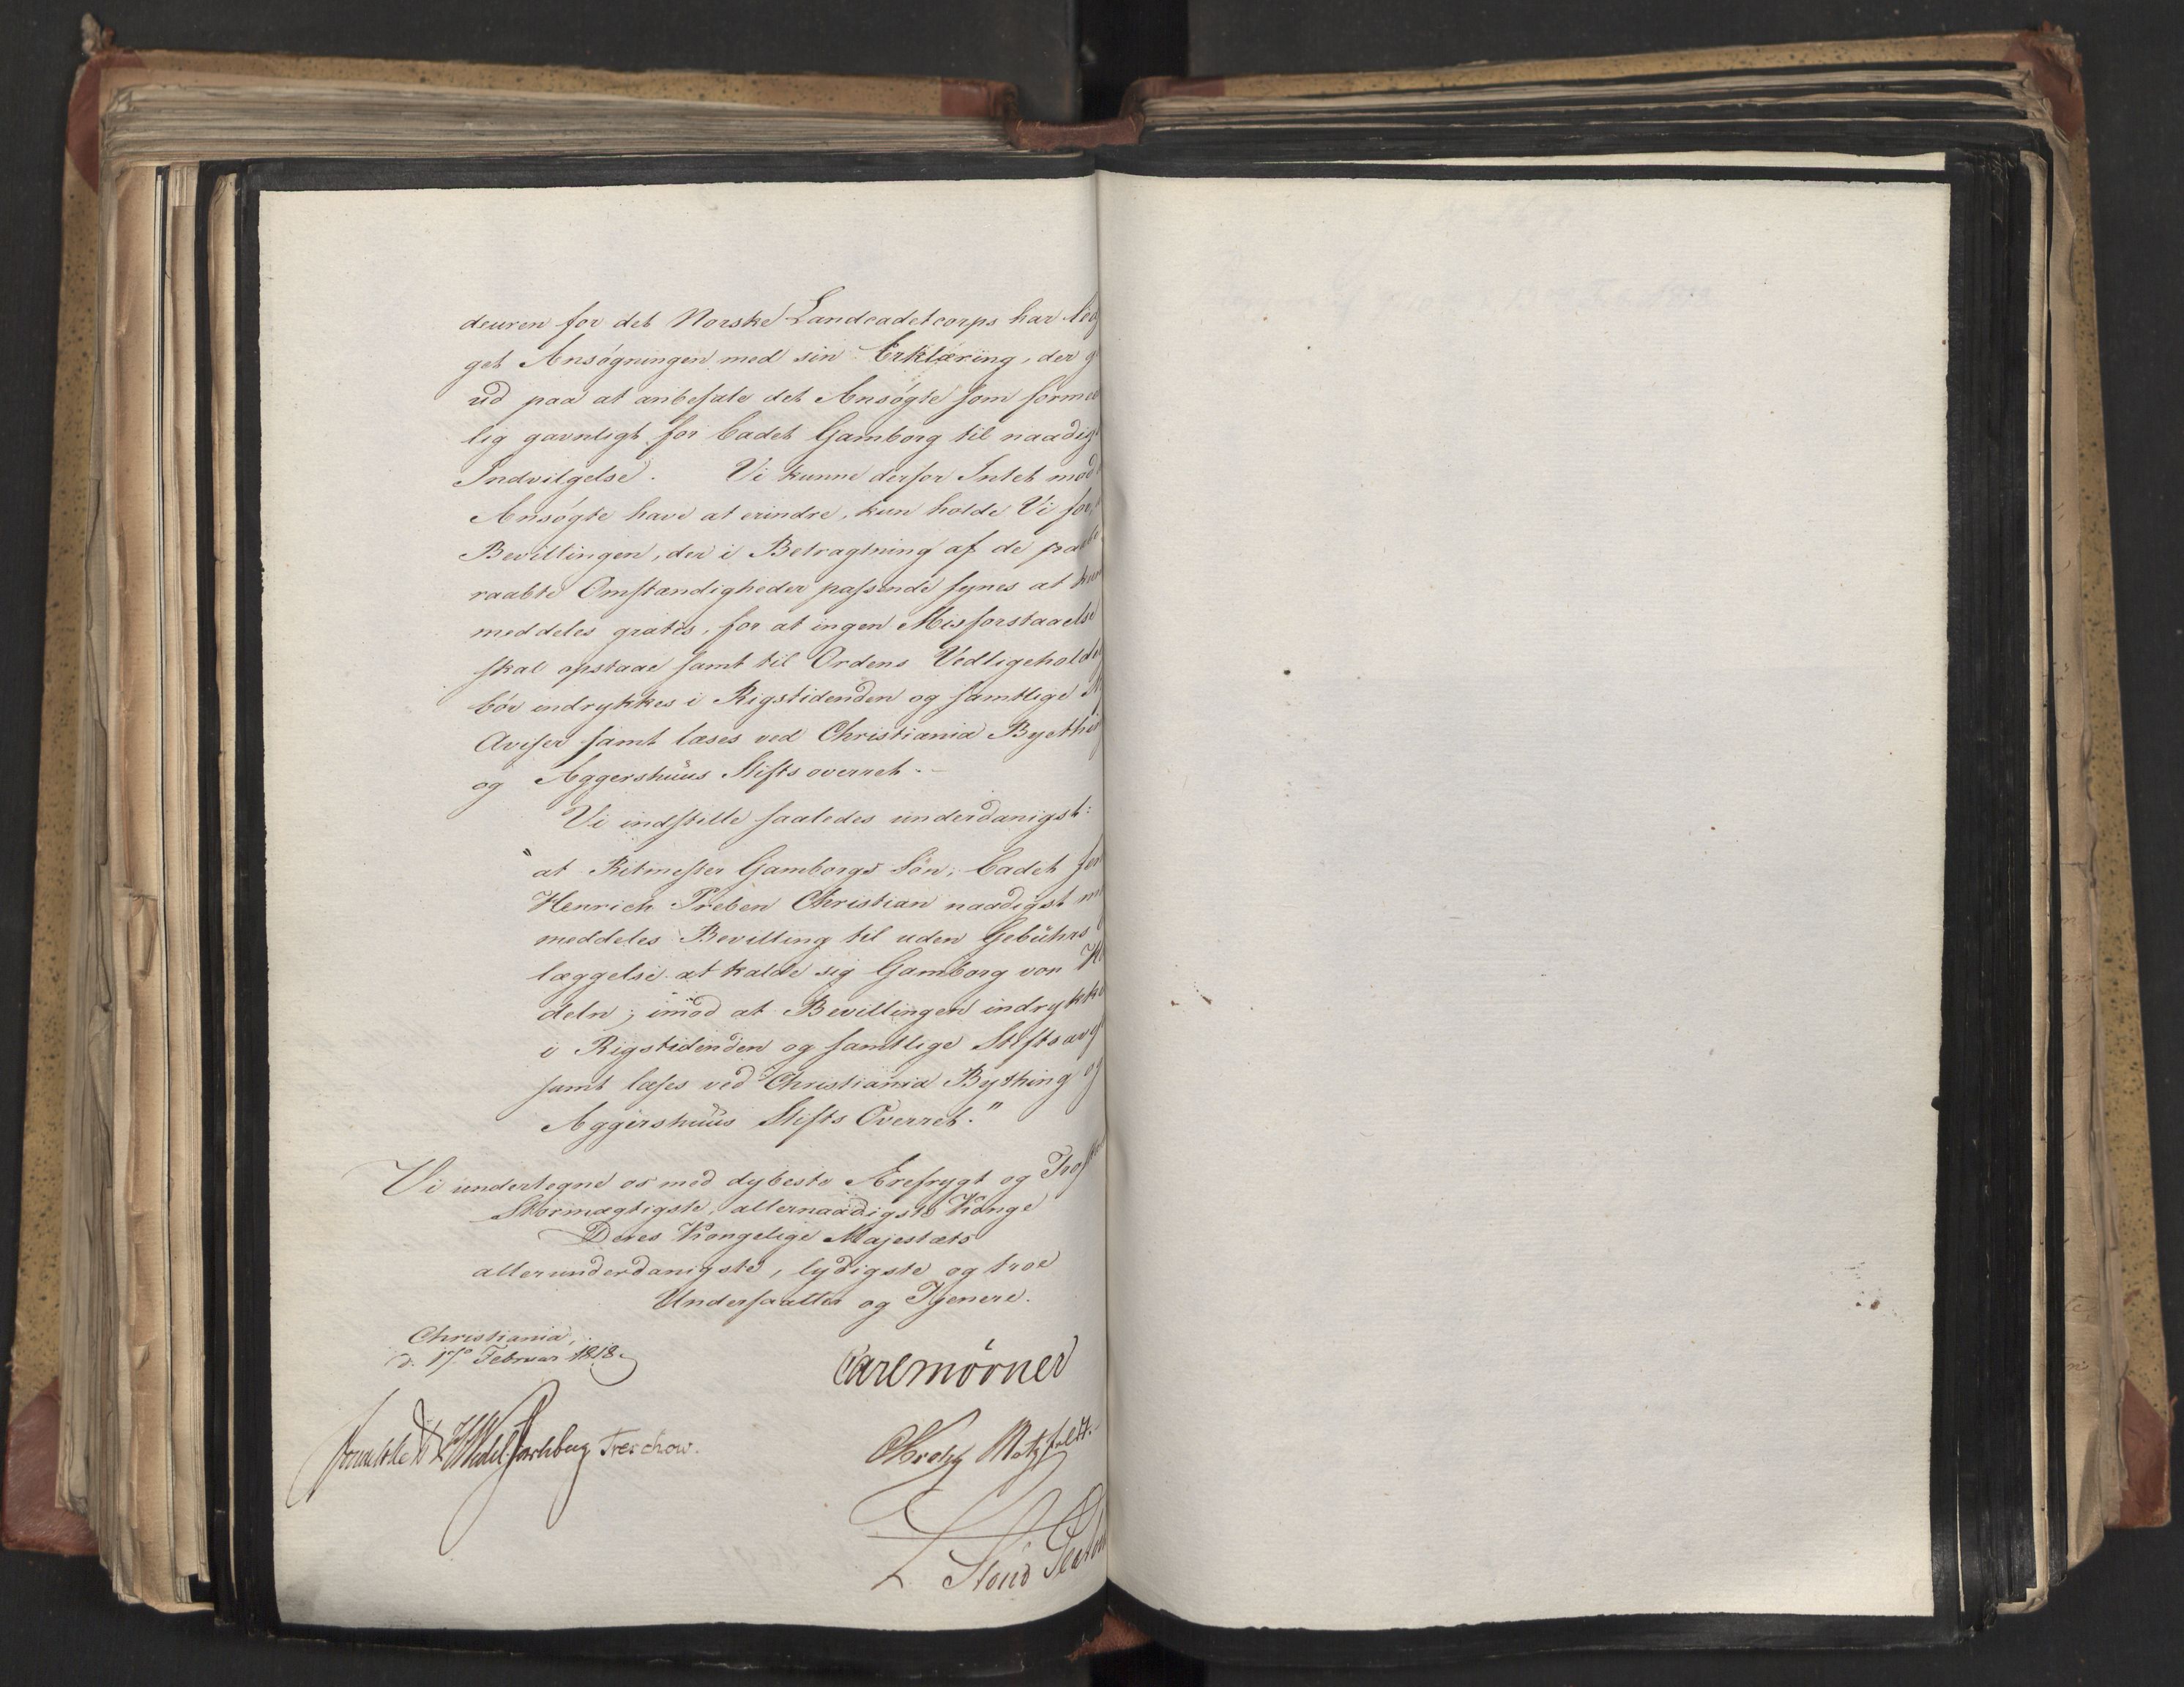 deuren for det Norske Landcadetcorps har
get Ansøgningen med sin Erklæring, der
ud paa at anbefale det Ansøgte som
lig gavnligt for Cadet Gamborg til naadig
Indvilgelse. Vi kunne derfor Intet mod
Ansøgte have at erindre, kun holde Vi for,
Bevillingen, der i Betragtning af de
raabte Omstændigheder passende synes at
meddeles gratis, for at ingen Misforstaaelse
skal opstaae samt til Ordens Vedligeholde
bør indrykkes i Rigstidenden og samtlige
Aviser samt læses ved Christiania Bything
og Aggershuus Stiftsoverret.-
Vi indstille saaledes underdanigst:
"at Ritmester Gamborgs Søn, Cadet
Henrich Preben Christian naadigst
meddeles Bevilling til uden Gebührs
læggelse at kalde sig Gamborg von
deln; imod at Bevillingen indrykke
i Rigstidenden og samtlige
samt læses ved Christiania Bything og
Aggershuus Stifts Overret."
Vi undertegne os med dybeste Ærefrygt og
Stormægtigste, allernaadigste Konge
Deres Kongelige Majestæts
allerunderdanigste, lydigste og troe
Undersaatter og Tjenere.
Christiania,
d. 17de Februar 1818.
Carl Mörner
Sommerhielm Wedel Jarlsberg Treschow.
Motzfeldt.